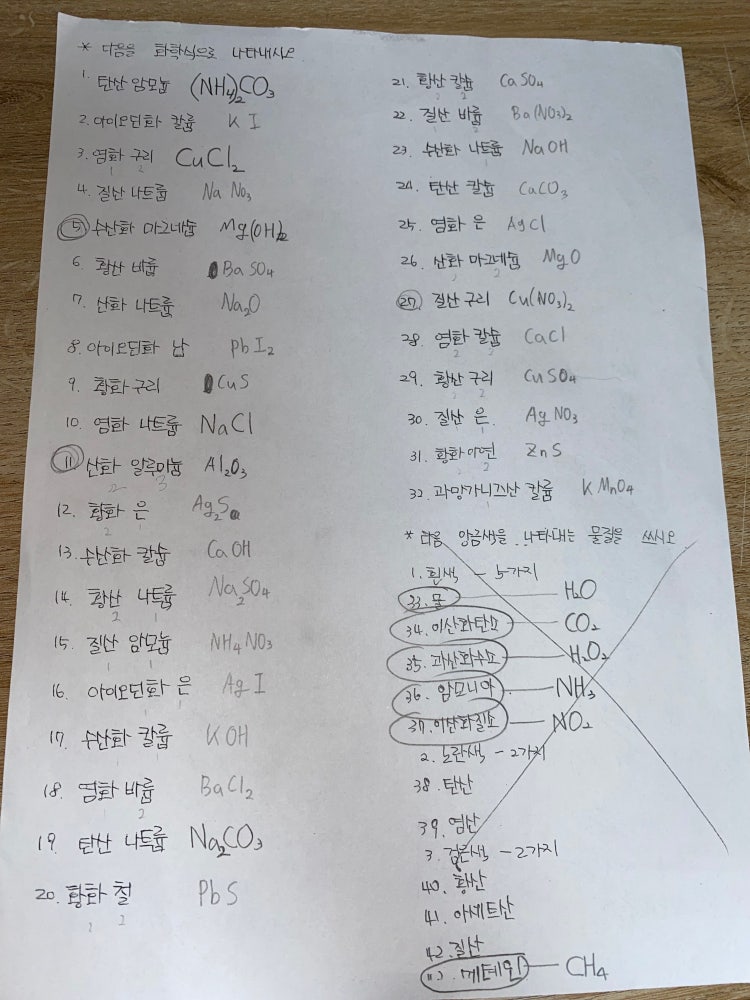 * 다음을 화학식으로 나타내시오
1. 탄산 암모늄 (NH4)2CO3
2. 아이오딘화 칼륨 KI
3. 염화 구리 CuCl2
1 2
4. 질산 나트륨 NaNO3
5) 수산화 마그네슘 Mg(OH)2
6. 황산 바륨 BaSO4
7. 산화 나트륨 Na2O
8. 아이오딘화 납 PbI2
9. 황화 구리 CuS
10. 염화 나트륨 NaCl
11 산화 알루미늄 Al2O3
2 3
12. 황화 은 Ag2S
2 1
13. 수산화 칼슘 CaOH
14. 황산 나트륨 Na2SO4
2 1
15. 질산 암모늄 NH4NO3
1 1
16. 아이오딘화 은 AgI
1 1
17. 수산화 칼륨 KOH
1 1
18. 염화 바륨 BaCl2
1 2
19. 탄산 나트륨 Na2CO3
20. 황화 철 PbS
2 2
21. 황산 칼슘 CaSO4
2 2
22. 질산 바륨 Ba(NO3)2
1 2
23. 수산화 나트륨 NaOH
1
24. 탄산 칼슘 CaCO3
25. 염화 은 AgCl
26. 산화 마그네슘 MgO
2 2
27. 질산 구리 Cu(NO3)2
28. 염화 칼슘 CaCl
2 2
29. 황산 구리 CuSO4
2 2
30. 질산 은 AgNO3
1 1
31. 황화 아연 ZnS
2 2
32. 과망가니즈산 칼륨 KMnO4
1
* 다음 앙금색을 나타내는 물질을 쓰시오
1. 흰색 - 5가지
33. 물 H2O
34. 이산화탄소 CO2
35. 과산화수소 H2O2
36. 암모니아 NH3
37. 이산화질소 NO2
2. 노란색 - 2가지
38. 탄산
39. 염산
3. 검은색 - 2가지
40. 황산
41. 아세트산
42. 질산
메테인 CH4